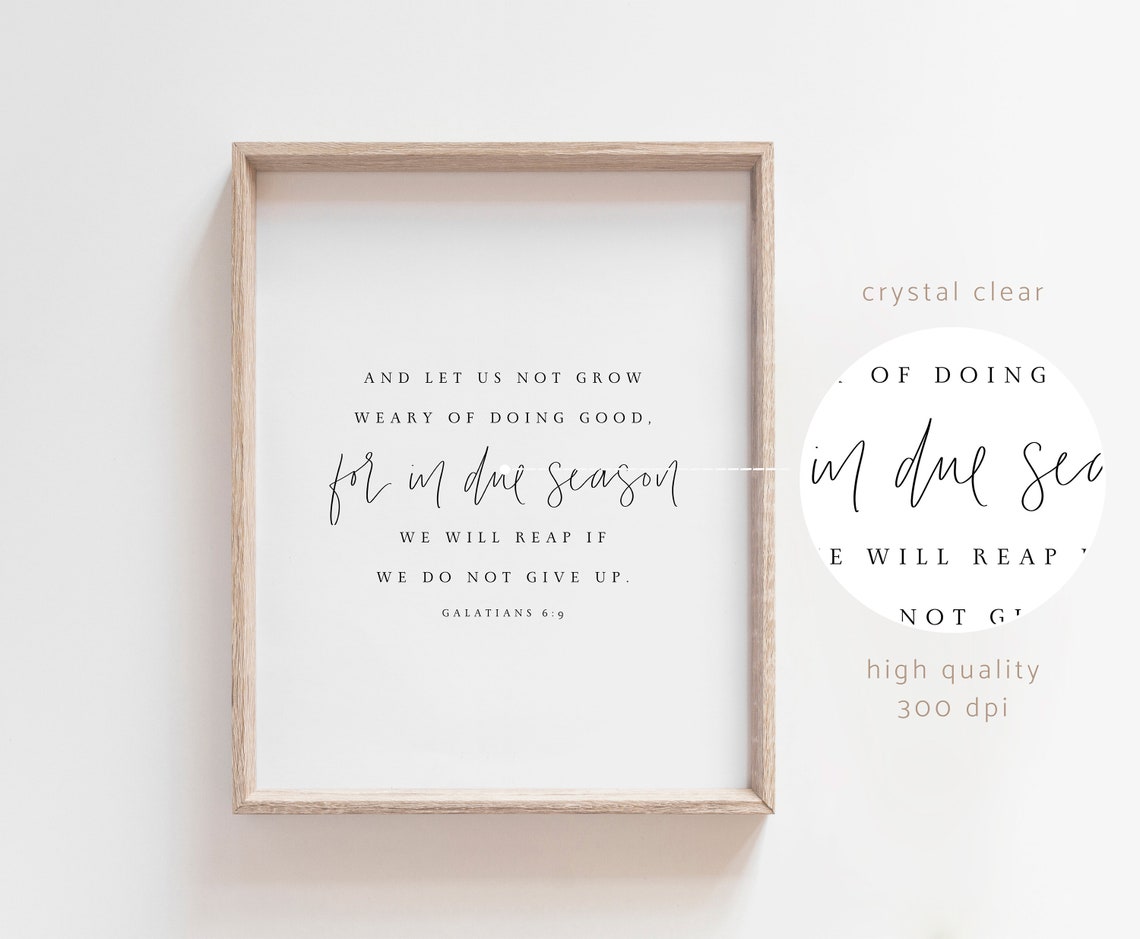 AND LET US NOT GROW
WEARY OF DOING GOOD,
for in due season
WE WILL REAP IF
WE DO NOT GIVE UP.
GALATIANS 6:9
crystal clear
OF DOING
in due sea
WE WILL REAP I
NOT GI
high quality
300 dpi